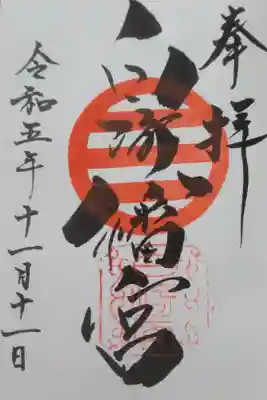 奉拝
塚八幡宮
令和五年十一月十一日